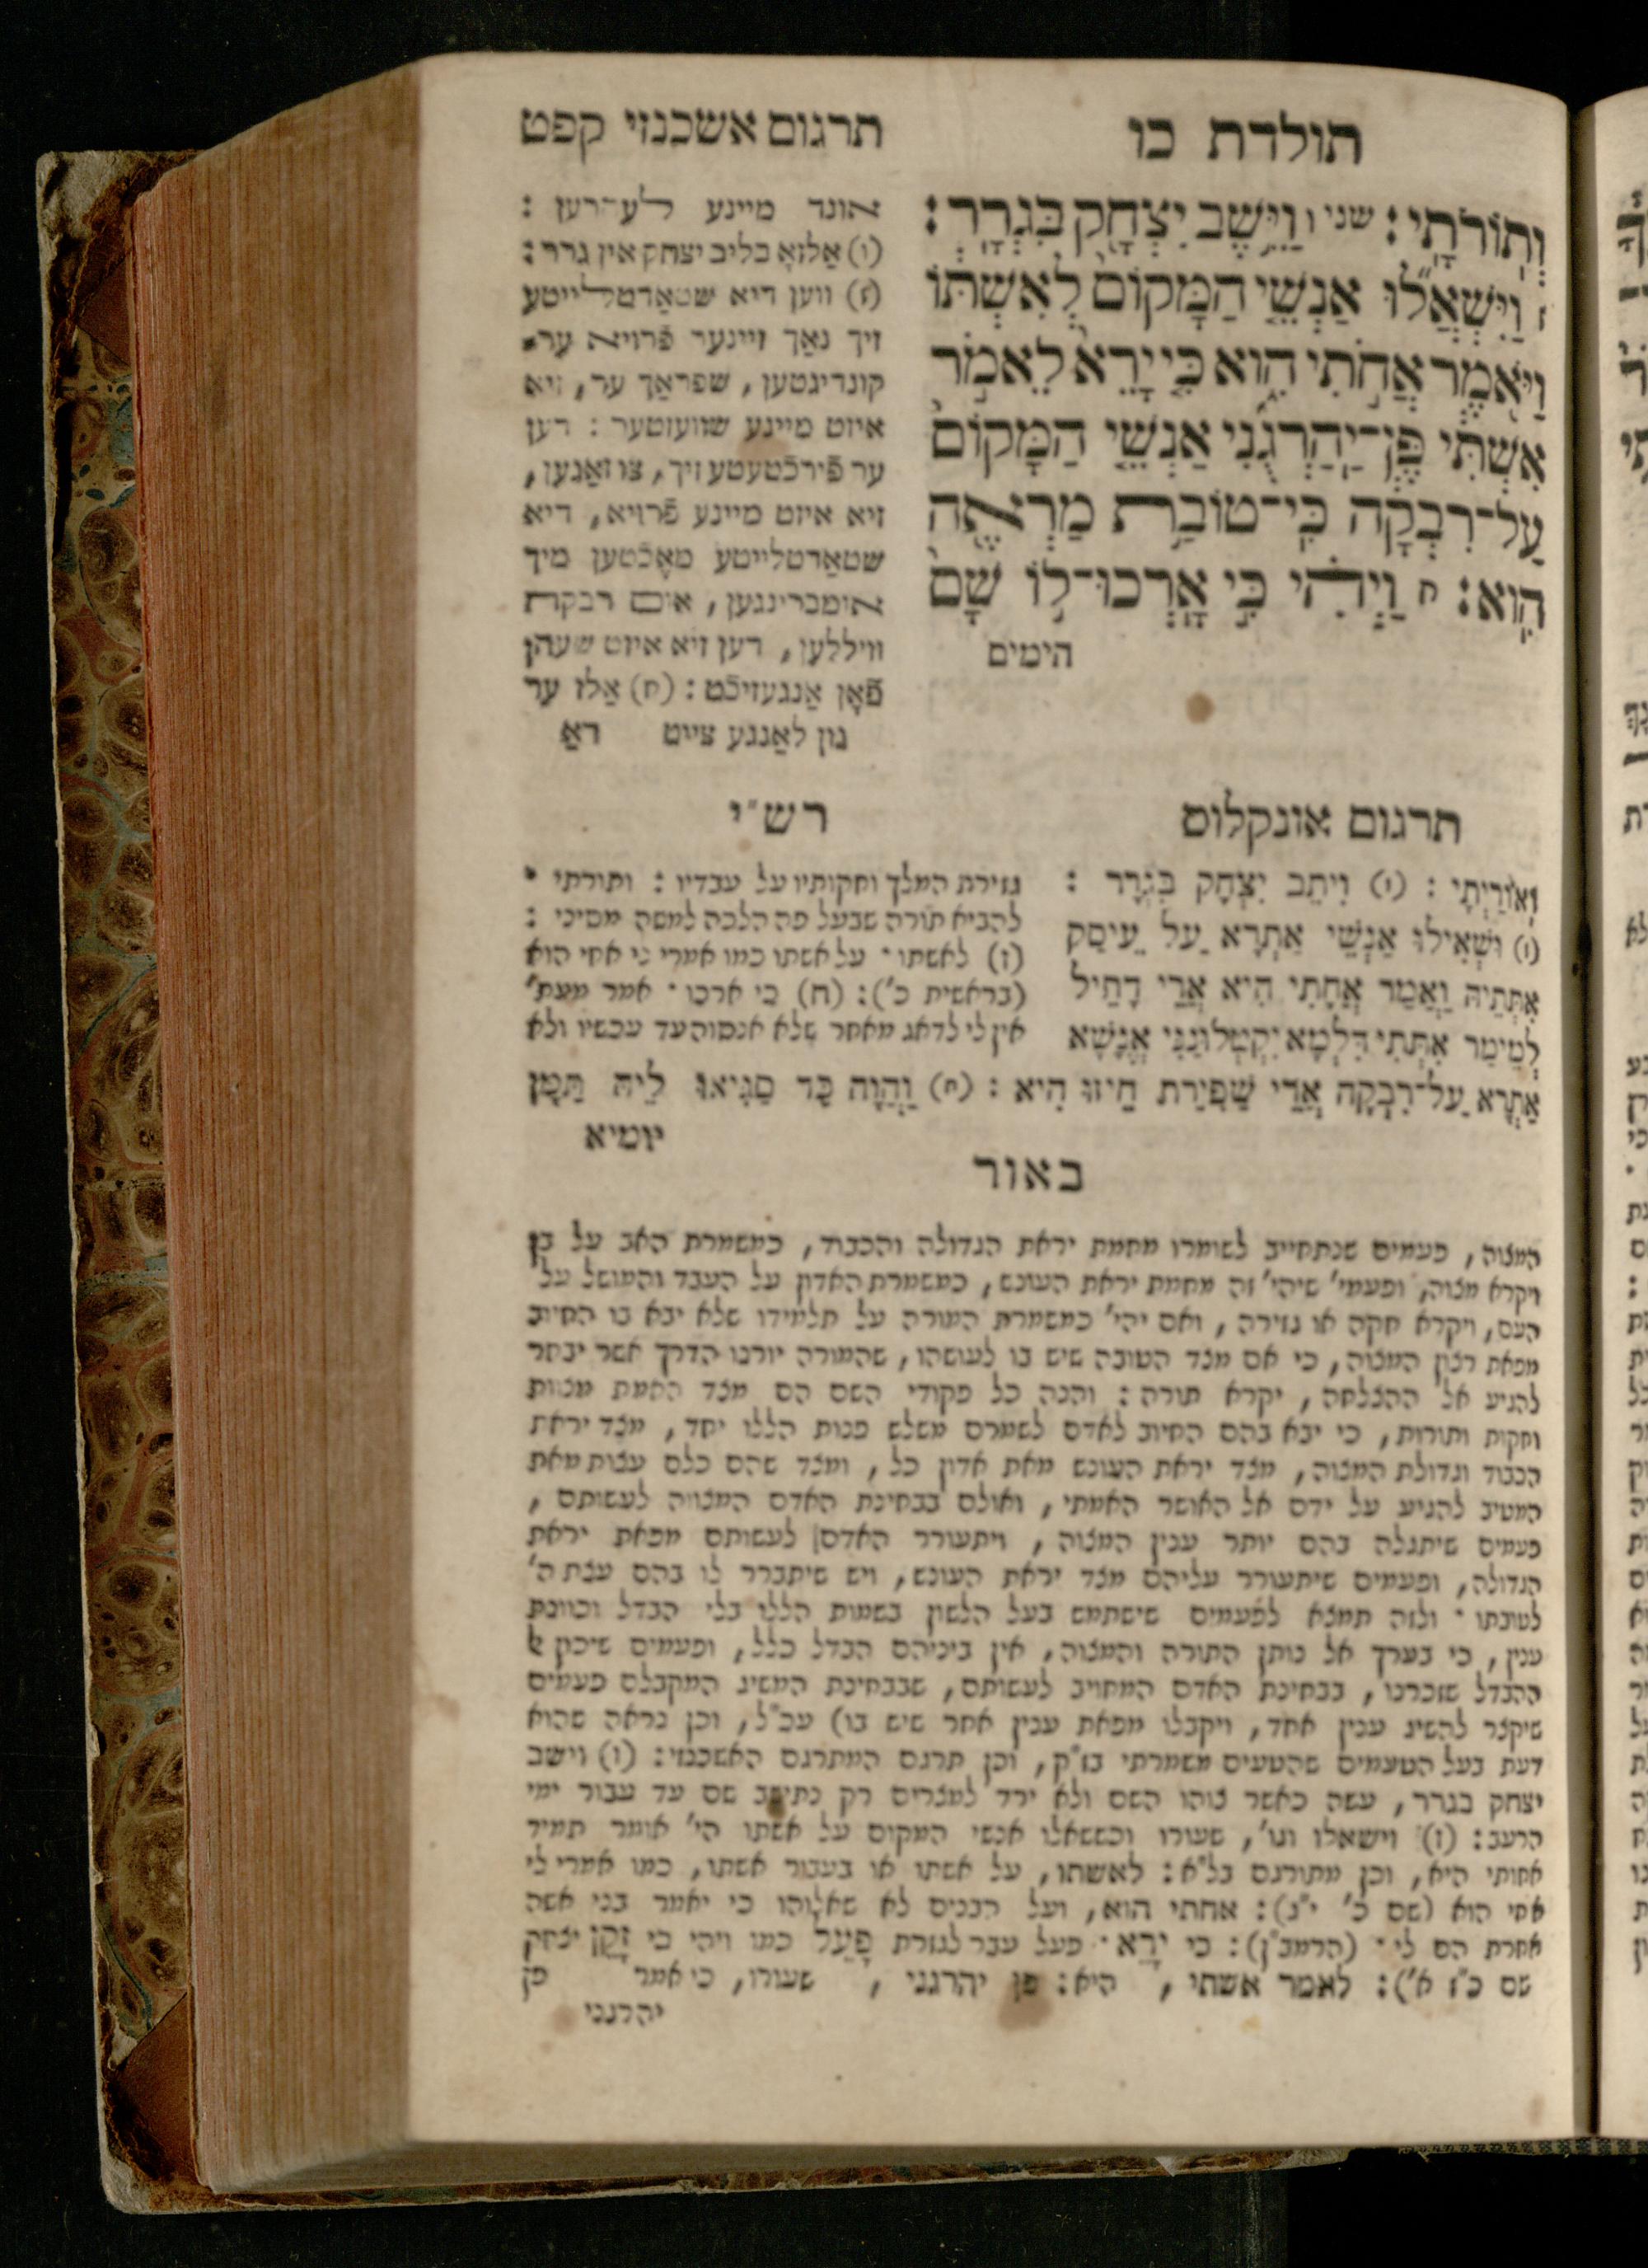 תולדת כו
תרגום אשכנזי קפט
וְתוֹרֹתָי׃ שני ו וַיֵּשֶׁב יִצְחָק בִּגְרָר׃
ז וַיִּשְׁאֲלוּ אַנְשֵׁי הַמָּקוֹם לְאִשְׁתּוֹ
וַיֹּאמֶר אֲחֹתִי הִוא כִּי יָרֵא לֵאמֹר
אִשְׁתִּי פֶּן־יַהַרְגֻנִי אַנְשֵׁי הַמָּקוֹם
עַל־רִבְקָה כִּי־טוֹבַת מַרְאֶה
הִוא׃ ח וַיְהִי כִּי אָרְכוּ־לוֹ שָׁם
הימים
אונד מיינע לעהרען :
(ו) אַלזאָ בליב יצחק אין גרר :
(ז) ווען דיא שטאַדטלייטע
זיך נאַך זיינער פֿרויא ער⸗
קונדיגטען, שפראַך ער, זיא
איזט מיינע שוועזטער : דען
ער פֿירכֿטעטע זיך, צו זאַגען,
זיא איזט מיינע פֿרויא, דיא
שטאַדטלייטע מאֶכֿטען מיך
אומברינגען, אום רבקה
וויללען, דען זיא איזט שעהן
פֿאָן אַנגעזיכֿט : (ח) אַלז ער
נון לאַנגע צייט דאַ
תרגום אונקלוס
וְאוֹרַיְתָי : (ו) וִיתֵב יִצְחָק בִּגְרָר :
(ז) וּשְׁאִילוּ אַנְשֵׁי אַתְרָא עַל עֵיסַק
אִתְּתֵיהּ וַאֲמַר אֲחָתִי הִיא אֲרֵי דָחֵיל
לְמֵימַר אִתְּתִי דִּלְמָא יִקְטְלוּנַּנִי אֱנָשֵׁא
אַתְרָא עַל־רִבְקָה אֲרֵי שַׁפִּירַת חֵיזוּ הִיא : (ח) וַהֲוָה כַּד סַגִיאוּ לֵיהּ תַּמָּן
יומיא
רש״י
גזירת המלך וחקותיו על עבדיו : ותורתי ·
להביא תורה שבעל פה הלכה למשה מסיני :
(ז) לאשתו · על אשתו כמו אמרי לי אחי הוא
(בראשית כ׳): (ח) כי ארכו · אמר מעת׳
אין לי לדאג מאחר שלא אנסוה עד עכשיו ולא
באור
המצוה, פעמים שנתחייב לשומרו מחמת יראת הגדולה והכבוד, כמשמרת האב על בן
ויקרא מצוה, ופעמי׳ שיהי׳ זה מחמת יראת העונש, כמשמרת האדון על העבד והמושל על
העם, ויקרא חקה או גזירה, ואם יהי׳ כמשמרת המורה על תלמידו שלא יבא בו החיוב
מפאת רצון המצוה, כי אם מצד הטובה שיש בו לעושהו, שהמורה יורנו הדרך אשר יבחר
להגיע אל ההצלחה, יקרא תורה : והנה כל פקודי השם הם מצד האמת מצות
וחקות ותורות, כי יבא בהם החיוב לאדם לשמרם משלש פנות הללו יחד, מצד יראת
הכבוד וגדולת המצוה, מצד יראת העונש מאת אדון כל, ומצד שהם כלם עצות מאת
המטיב להגיע על ידם אל האושר האמתי, ואולם בבחינת האדם המצווה לעשותם,
פעמים שיתגלה בהם יותר ענין המצוה, ויתעורר האדם לעשותם מפאת יראת
הגדולה, ופעמים שיתעורר עליהם מצד יראת העונש, ויש שיתברר לו בהם עצת ה׳
לטובתו · ולזה תמצא לפעמים שישתמש בעל הלשון בשמות הללו בלי הבדל וכוונת
ענין, כי בערך אל נותן התורה והמצוה, אין ביניהם הבדל כלל, ופעמים שיכון ל
ההבדל שזכרנו, בבחינת האדם המחויב לעשותם, שבבחינת המשיג המקבלם פעמים
שיקצר להשיג ענין אחד, ויקבלו מפאת ענין אחר שיש בו) עכ״ל, וכן נראה שהוא
דעת בעל הטעמים שהטעים משמרתי בז״ק, וכן תרגם המתרגם האשכנזי : (ו) וישב
יצחק בגרר, עשה כאשר צוהו השם ולא ירד למצרים רק נתישב שם עד עבור ימי
הרעב : (ז) וישאלו וגו׳, שעורו וכששאלו אנשי המקום על אשתו הי׳ אומר תמיד
אחותי היא, וכן מתורגם בל״א : לאשתו, על אשתו או בעבור אשתו, כמו אמרי לי
אחי הוא (שם כ׳ י״ג) : אחתי הוא, ועל הבנים לא שאלוהו כי יאמר בני אשה
אחרת הם לי · (הרמב״ן) : כי יָרֵא · פעל עבר לגזרת פָעֵל כמו ויהי כי זָקֵן יצחק
שם כ״ז א׳) : לאמר אשתי, היא : פן יהרגני, שעורו, כי אמר פן
יהרגני